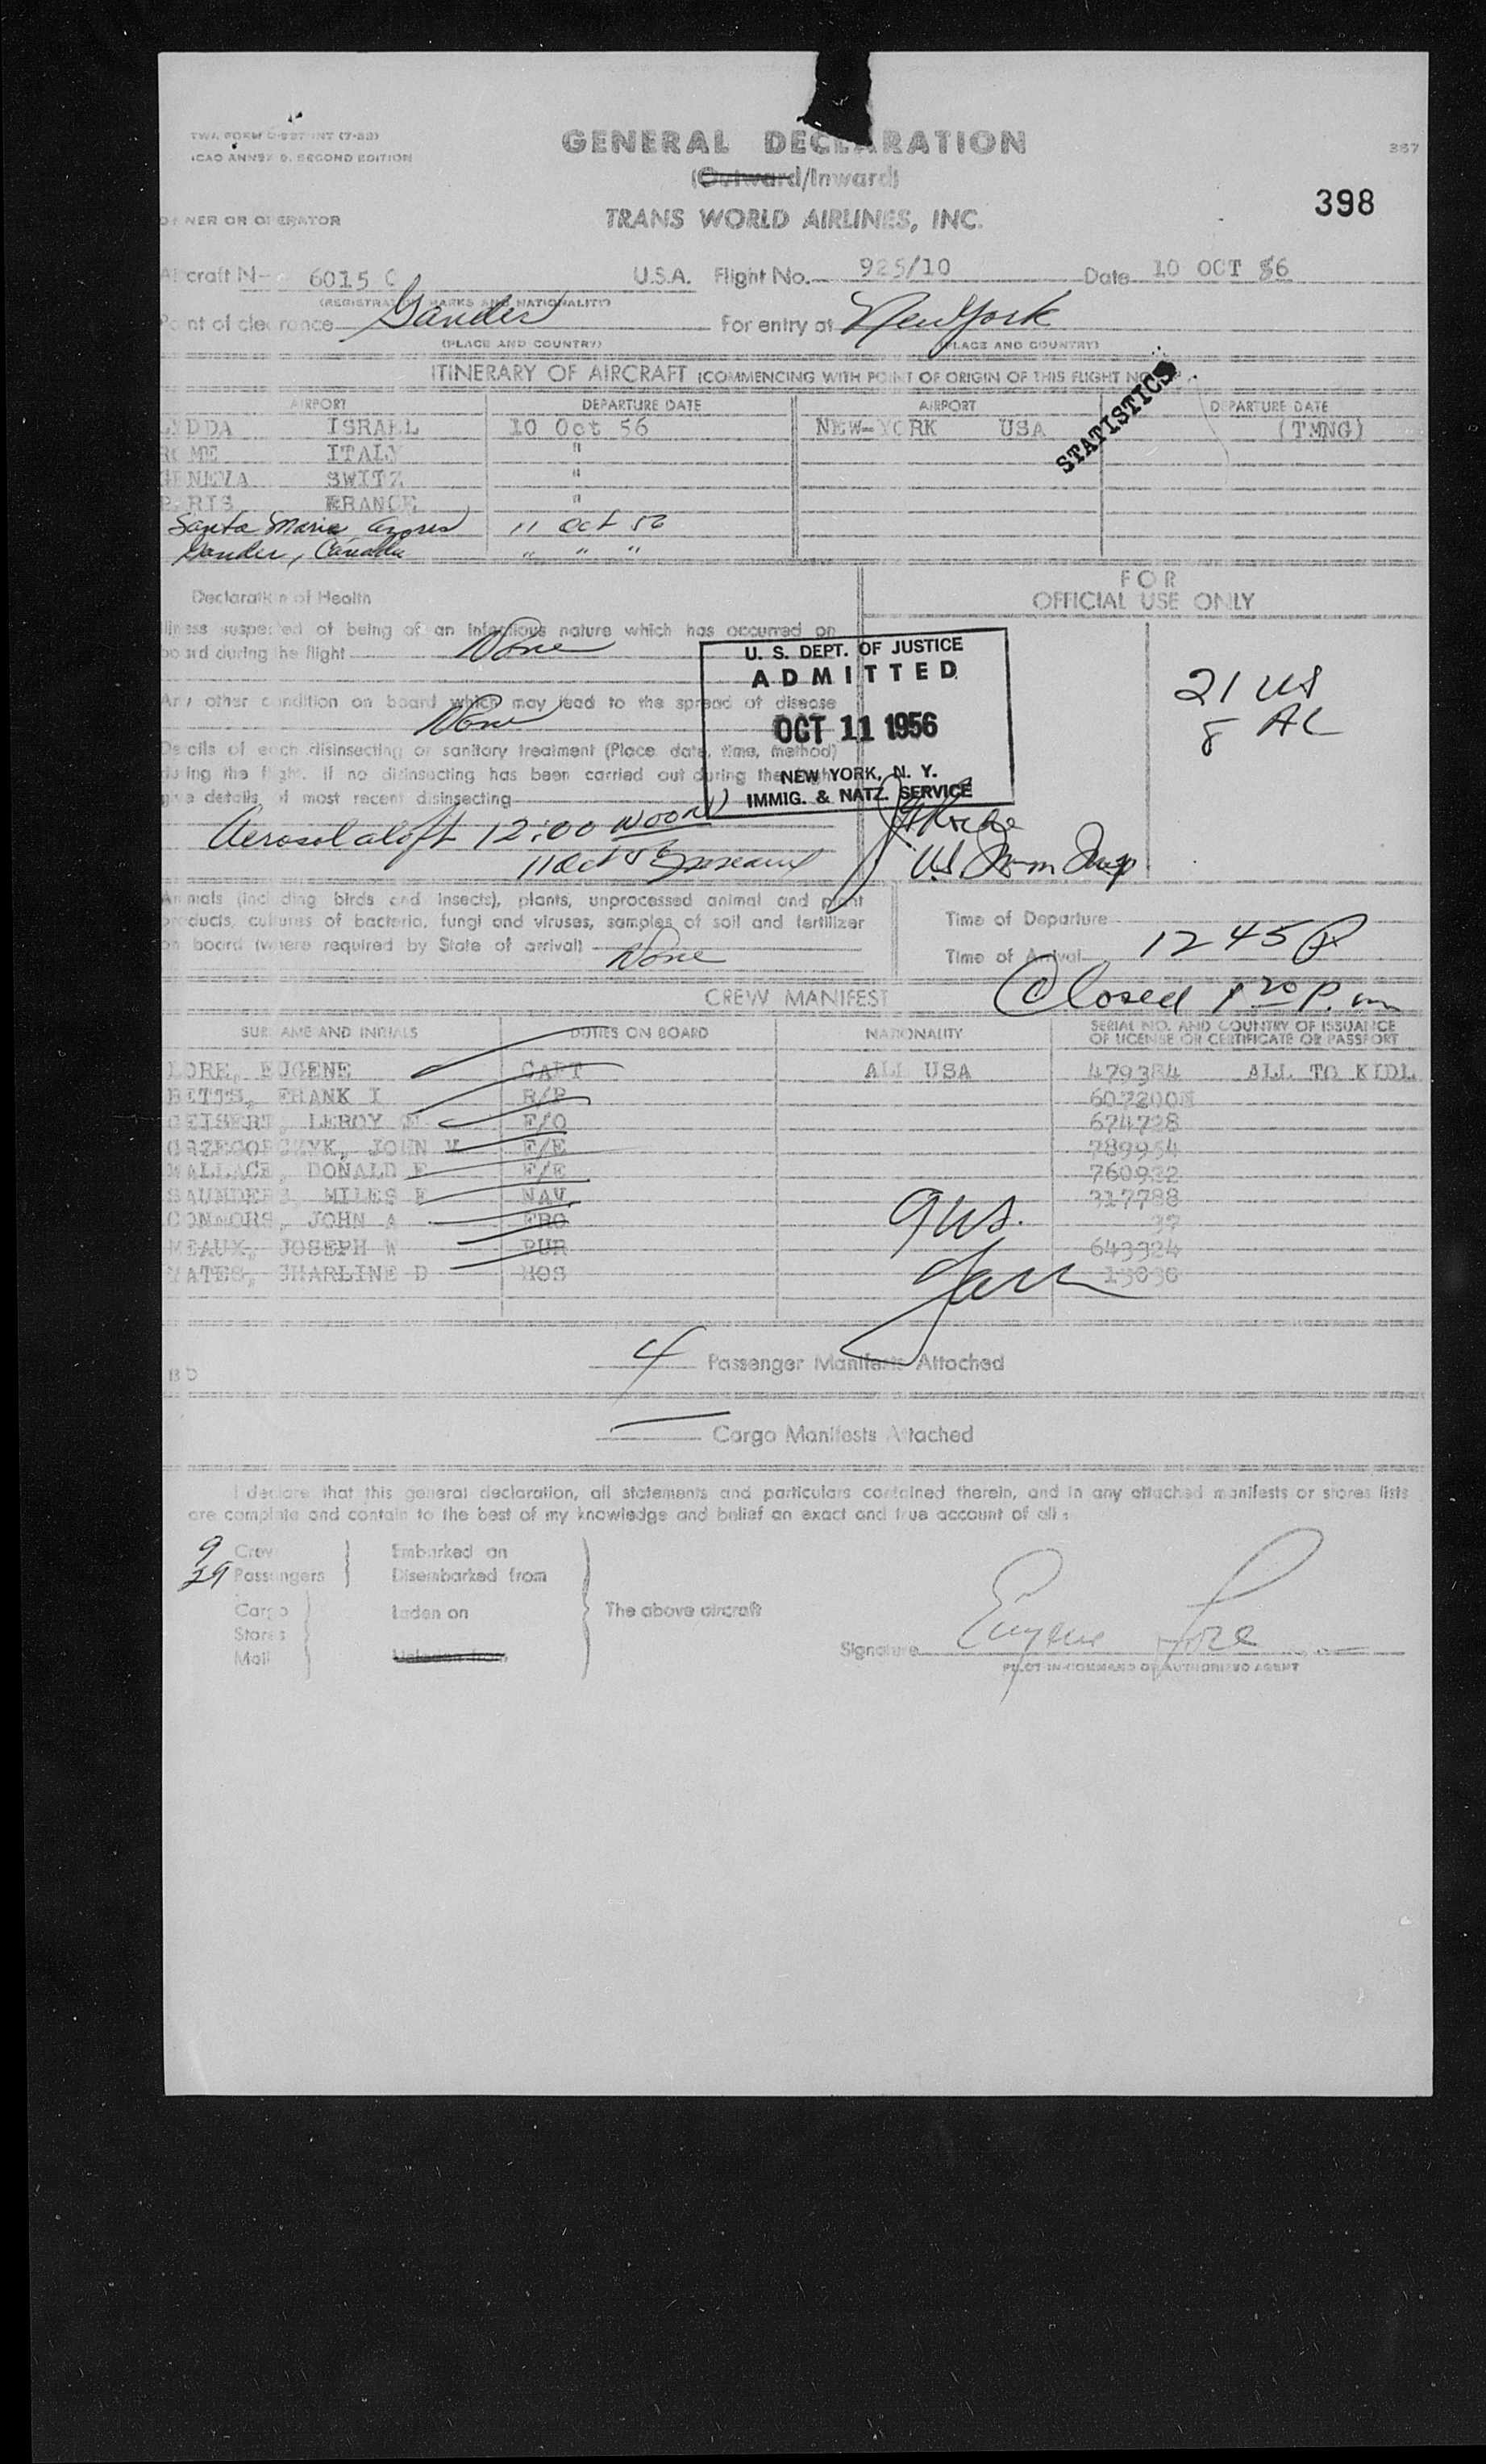 TWA FORM INT (7-53)
ICAO ANNEX 9, SECOND EDITION
GENERAL DECLARATION
367
(Outward/Inward)
398
OWNER OR OPERATOR
TRANS WORLD AIRLINES, INC.
Aircraft N- 6015 C U.S.A. Flight No. 925/10 Date 10 OCT 56
(REGISTRATION MARKS AND NATIONALITY)
Point of clearance Gander For entry at New York
(PLACE AND COUNTRY) (PLACE AND COUNTRY)
ITINERARY OF AIRCRAFT (COMMENCING WITH POINT OF ORIGIN OF THIS FLIGHT NO.
STATISTICS
AIRPORT DEPARTURE DATE AIRPORT DEPARTURE DATE
LYDDA ISRAEL 10 Oct 56 NEW-YORK USA (TMNG)
ROME ITALY "
GENEVA SWITZ "
PARIS FRANCE "
Santa Maria, Azores 11 Oct 56
Gander, Canada " " "
Declaration of Health
FOR
OFFICIAL USE ONLY
Illness suspected of being of an infectious nature which has occurred on
board during the flight None
Any other condition on board which may lead to the spread of disease
None
Details of each disinsecting or sanitary treatment (Place, date, time, method)
during the flight. If no disinsecting has been carried out during the flight
give details of most recent disinsecting
Aerosol aloft 12:00 NOON
11 Oct 56
U. S. DEPT. OF JUSTICE
ADMITTED
OCT 11 1956
NEW YORK, N. Y.
IMMIG. & NATZ. SERVICE
21 US
8 AL
US Imm Insp
Animals (including birds and insects), plants, unprocessed animal and plant
products, cultures of bacteria, fungi and viruses, samples of soil and fertilizer
on board (where required by State of arrival) None
Time of Departure
Time of Arrival 12 45 P
Closed 1 20 P.m
CREW MANIFEST
SURNAME AND INITIALS DUTIES ON BOARD NATIONALITY SERIAL NO. AND COUNTRY OF ISSUANCE
OF LICENSE OR CERTIFICATE OR PASSPORT
LORE, EUGENE CAPT ALL USA 479384 ALL TO KIDL
BETTS, FRANK I R/P 607200
GEISERT, LEROY F/O 674728
GRZEGORCZYK, JOHN V F/E 789954
WALLACE, DONALD E F/E 760932
SAUNDERS, MILES F NAV. 317788
CONNORS, JOHN A FRO 37
MEAUX, JOSEPH W PUR 643324
YATES, CHARLINE D HOS 13030
9 US.
4 Passenger Manifests Attached
Cargo Manifests Attached
I declare that this general declaration, all statements and particulars contained therein, and in any attached manifests or stores lists
are complete and contain to the best of my knowledge and belief an exact and true account of all :
9 Crew Embarked on
29 Passengers Disembarked from
Cargo Laden on The above aircraft
Stores
Mail Unladen from
Signature Eugene Lore
PILOT-IN-COMMAND OR AUTHORIZED AGENT